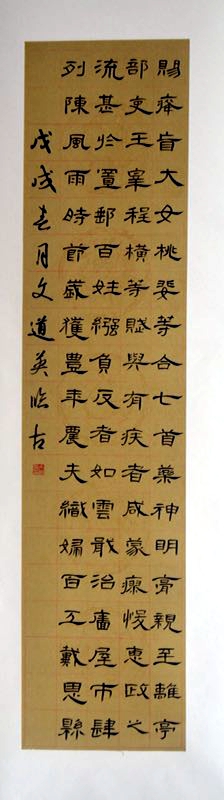 賜癃盲大女桃婓等合七首藥神明膏親至離亭
部吏王宰程橫等賦與有疾者咸蒙瘳悛惠政之
流甚於置郵百姓繈負反者如雲戢治廧屋市肆
列陳風雨時節歲獲豊年農夫織婦百工戴恩縣
戊戌春月文道英臨古